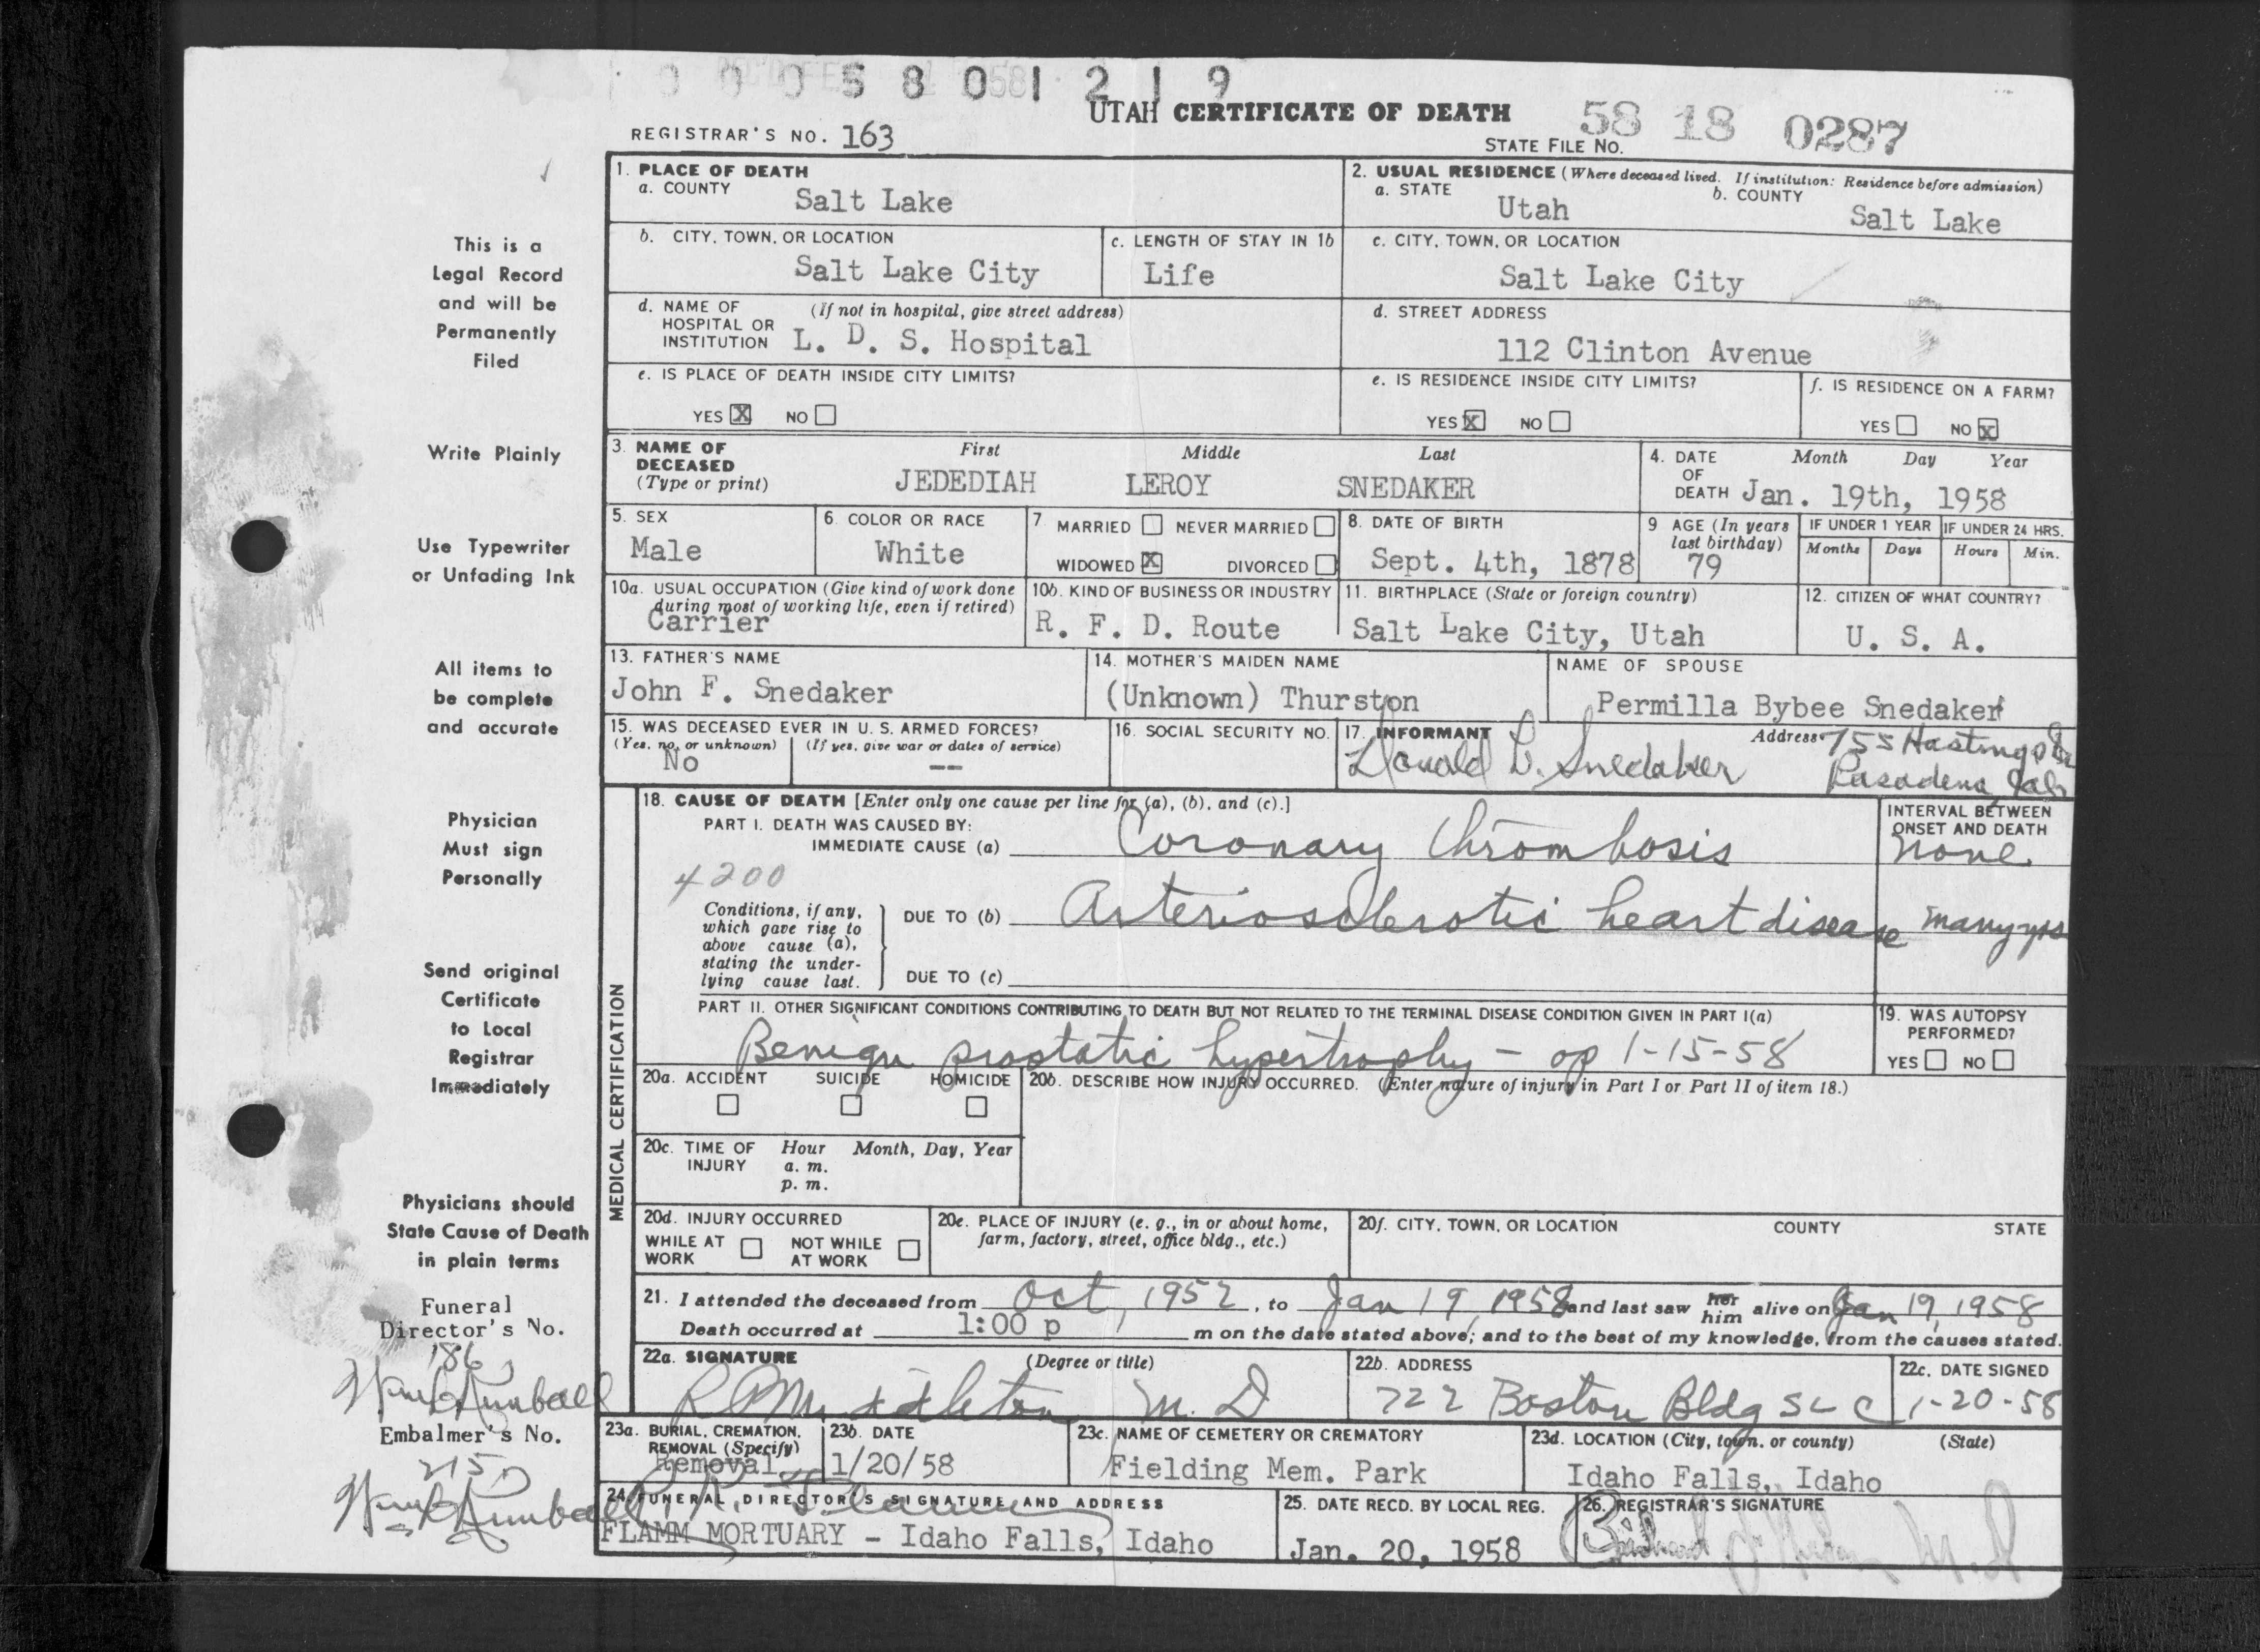 0 0 0 5 8 0 1 2 1 9
UTAH CERTIFICATE OF DEATH
REGISTRAR'S NO. 163
STATE FILE NO. 58 18 0287
This is a
Legal Record
and will be
Permanently
Filed
Write Plainly
Use Typewriter
or Unfading Ink
All items to
be complete
and accurate
Physician
Must sign
Personally
Send original
Certificate
to Local
Registrar
Immediately
Physicians should
State Cause of Death
in plain terms
Funeral
Director's No.
186
Embalmer's No.
215
1. PLACE OF DEATH
a. COUNTY Salt Lake
2. USUAL RESIDENCE (Where deceased lived. If institution: Residence before admission)
a. STATE Utah b. COUNTY Salt Lake
b. CITY, TOWN, OR LOCATION Salt Lake City
c. LENGTH OF STAY IN 1b Life
c. CITY, TOWN, OR LOCATION Salt Lake City
d. NAME OF HOSPITAL OR INSTITUTION (If not in hospital, give street address) L. D. S. Hospital
d. STREET ADDRESS 112 Clinton Avenue
e. IS PLACE OF DEATH INSIDE CITY LIMITS?
YES X NO
e. IS RESIDENCE INSIDE CITY LIMITS?
YES X NO
f. IS RESIDENCE ON A FARM?
YES NO X
3. NAME OF DECEASED (Type or print)
First Middle Last
JEDEDIAH LEROY SNEDAKER
4. DATE OF DEATH Month Day Year
Jan. 19th, 1958
5. SEX Male
6. COLOR OR RACE White
7. MARRIED NEVER MARRIED
WIDOWED X DIVORCED
8. DATE OF BIRTH Sept. 4th, 1878
9 AGE (In years last birthday) 79
IF UNDER 1 YEAR Months Days
IF UNDER 24 HRS. Hours Min.
10a. USUAL OCCUPATION (Give kind of work done during most of working life, even if retired) Carrier
10b. KIND OF BUSINESS OR INDUSTRY R. F. D. Route
11. BIRTHPLACE (State or foreign country) Salt Lake City, Utah
12. CITIZEN OF WHAT COUNTRY? U. S. A.
13. FATHER'S NAME John F. Snedaker
14. MOTHER'S MAIDEN NAME (Unknown) Thurston
NAME OF SPOUSE Permilla Bybee Snedaker
15. WAS DECEASED EVER IN U. S. ARMED FORCES?
(Yes, no, or unknown) No
(If yes, give war or dates of service) --
16. SOCIAL SECURITY NO.
17. INFORMANT Donald L. Snedaker
Address 755 Hastings
Pasadena Cal
MEDICAL CERTIFICATION
18. CAUSE OF DEATH [Enter only one cause per line for (a), (b), and (c).]
INTERVAL BETWEEN ONSET AND DEATH
PART I. DEATH WAS CAUSED BY:
IMMEDIATE CAUSE (a) Coronary Thrombosis none
4200
Conditions, if any, which gave rise to above cause (a), stating the underlying cause last.
DUE TO (b) Arteriosclerotic heart disease many yrs
DUE TO (c)
PART II. OTHER SIGNIFICANT CONDITIONS CONTRIBUTING TO DEATH BUT NOT RELATED TO THE TERMINAL DISEASE CONDITION GIVEN IN PART I(a)
Benign prostatic hypertrophy - op 1-15-58
19. WAS AUTOPSY PERFORMED?
YES NO
20a. ACCIDENT SUICIDE HOMICIDE
20b. DESCRIBE HOW INJURY OCCURRED. (Enter nature of injury in Part I or Part II of item 18.)
20c. TIME OF INJURY Hour Month, Day, Year
a. m.
p. m.
20d. INJURY OCCURRED
WHILE AT WORK NOT WHILE AT WORK
20e. PLACE OF INJURY (e. g., in or about home, farm, factory, street, office bldg., etc.)
20f. CITY, TOWN, OR LOCATION COUNTY STATE
21. I attended the deceased from Oct, 1952, to Jan 19, 1958 and last saw her him alive on Jan 19, 1958
Death occurred at 1:00 p m on the date stated above; and to the best of my knowledge, from the causes stated.
22a. SIGNATURE (Degree or title)
R P Middleton M. D
22b. ADDRESS 722 Boston Bldg SLC
22c. DATE SIGNED 1-20-58
23a. BURIAL, CREMATION, REMOVAL (Specify) Removal
23b. DATE 1/20/58
23c. NAME OF CEMETERY OR CREMATORY Fielding Mem. Park
23d. LOCATION (City, town, or county) (State) Idaho Falls, Idaho
24 FUNERAL DIRECTOR'S SIGNATURE AND ADDRESS
FLAMM MORTUARY - Idaho Falls, Idaho
25. DATE RECD. BY LOCAL REG. Jan. 20, 1958
26. REGISTRAR'S SIGNATURE